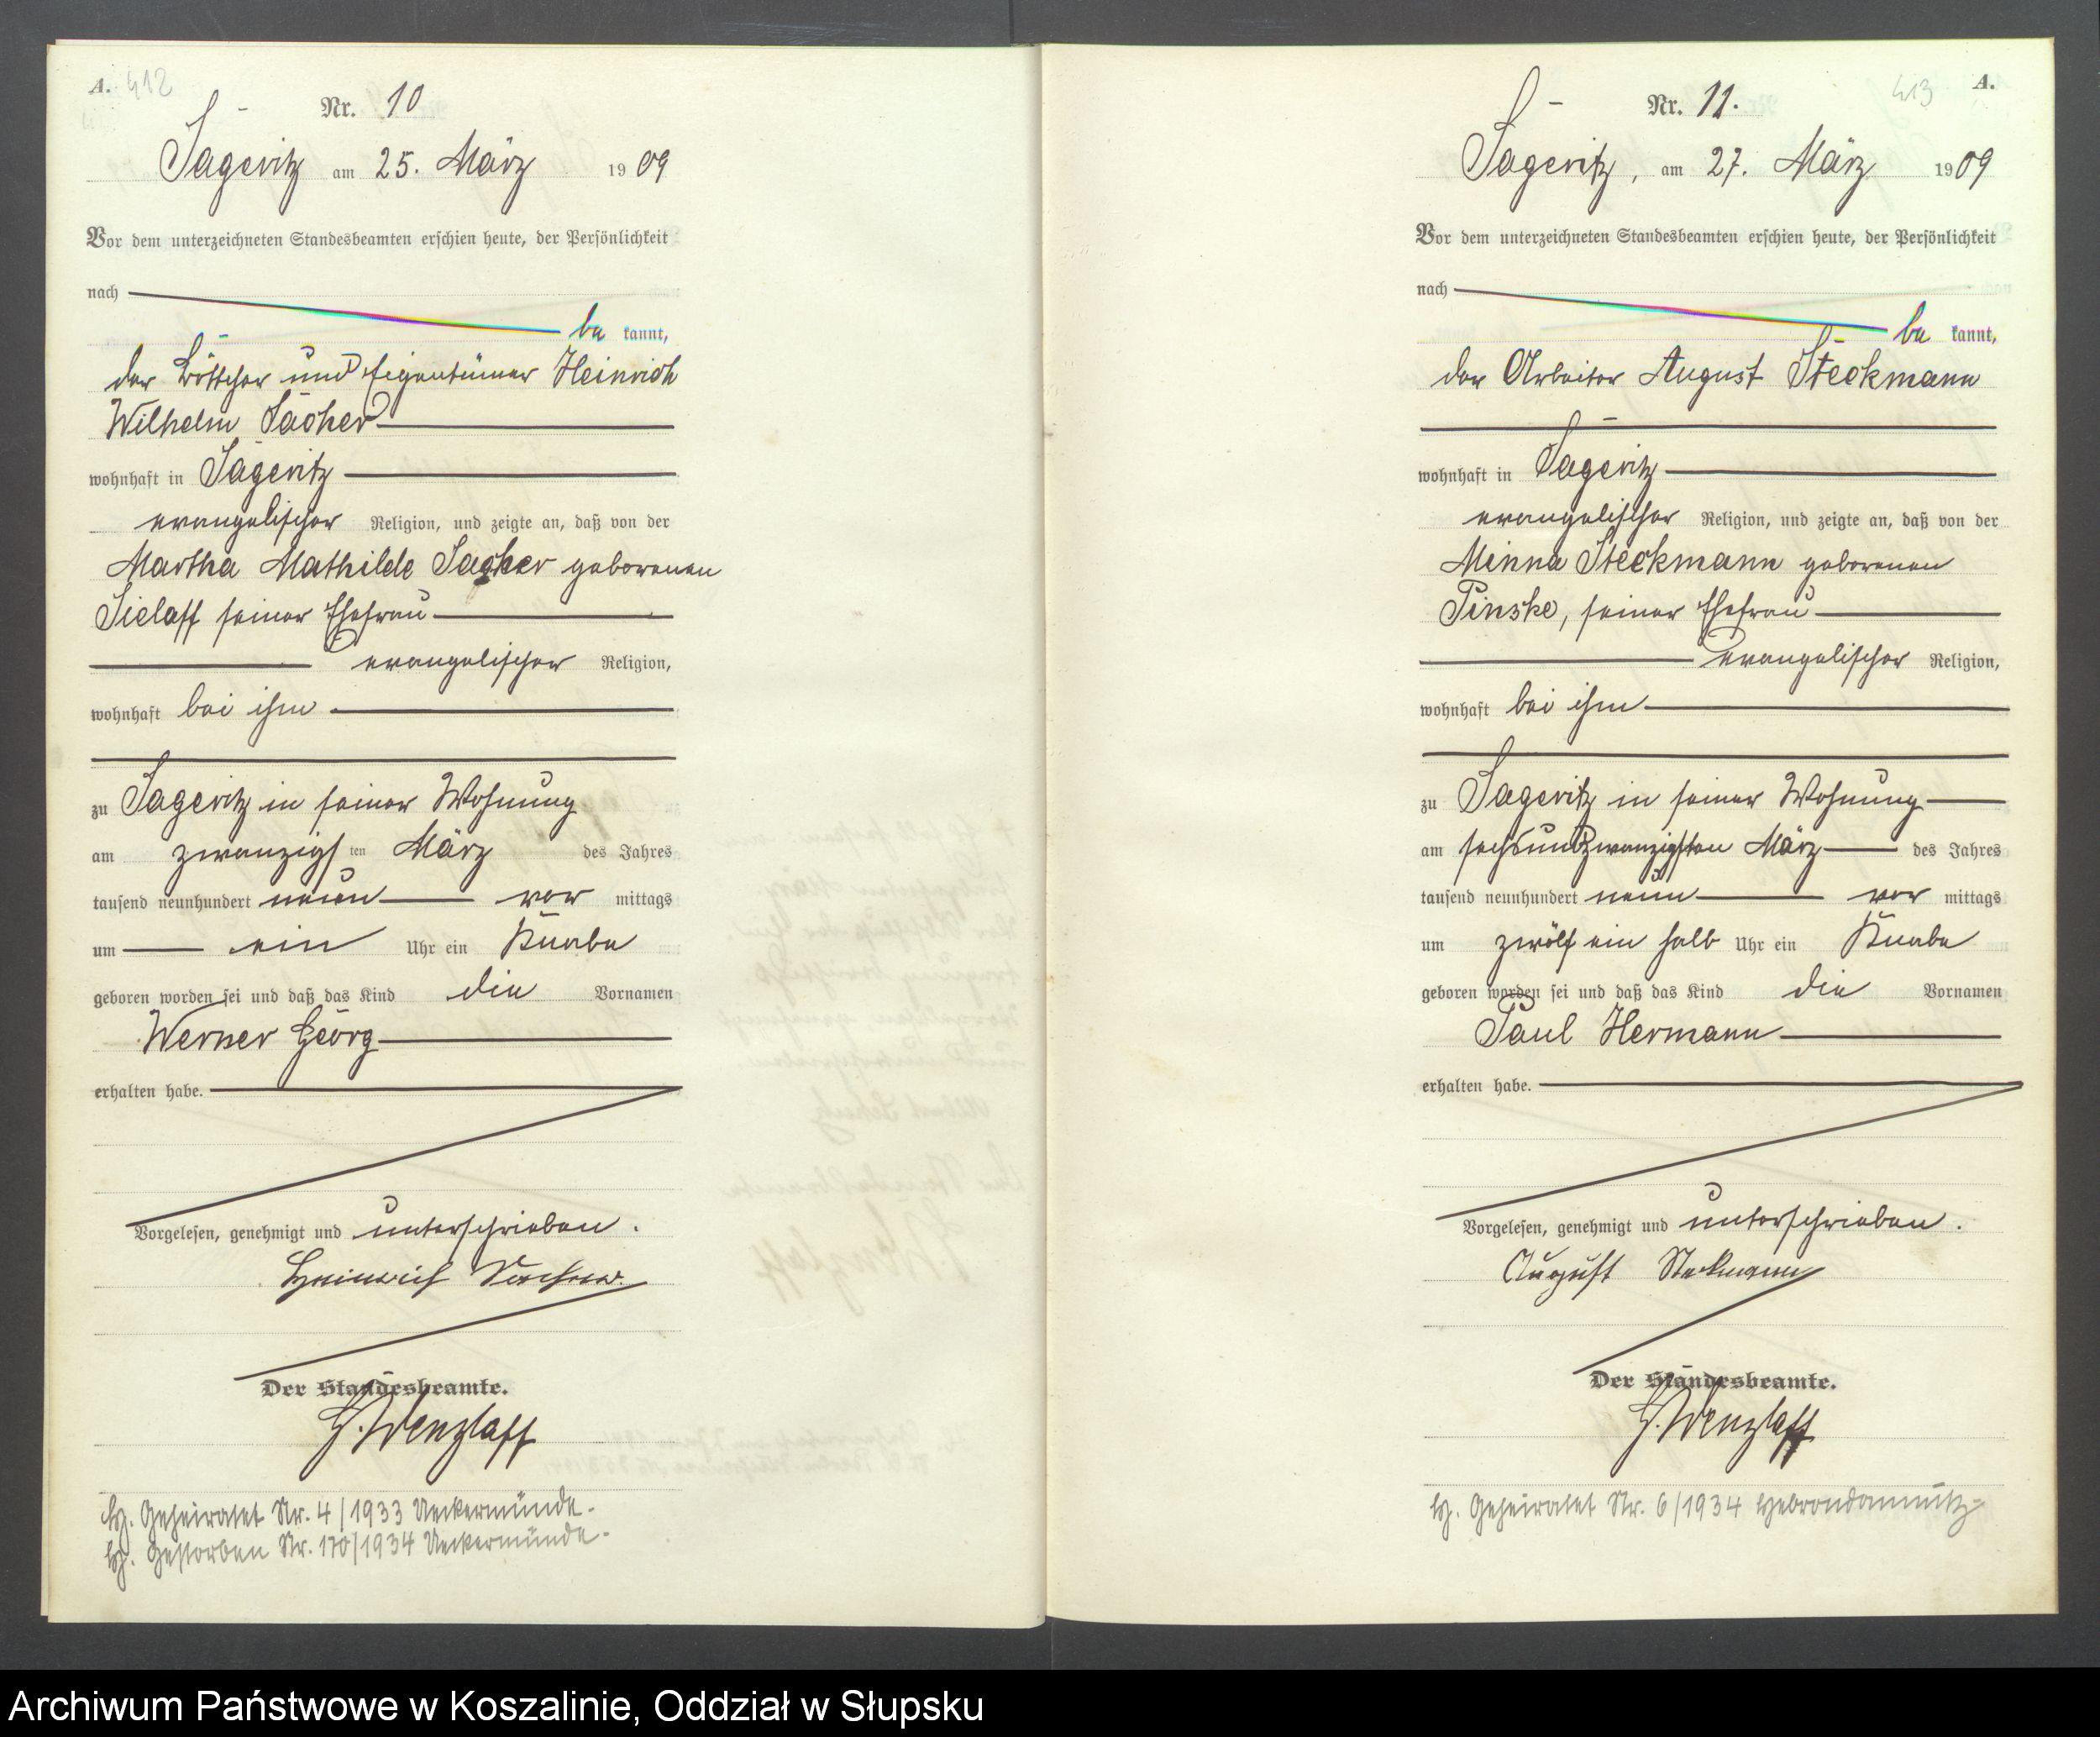 A. 412
Nr. 10
Sageritz am 25. März 1909
Vor dem unterzeichneten Standesbeamten erschien heute, der Persönlichkeit
nach
be kannt,
der Böttcher und Eigentümer Heinrich
Wilhelm Sacher
wohnhaft in Sageritz
evangelischer Religion, und zeigte an, daß von der
Martha Mathilde Sacher geborenen
Sielaff seiner Ehefrau
evangelischer Religion,
wohnhaft bei ihm
zu Sageritz in seiner Wohnung
am zwanzigsten März des Jahres
tausend neunhundert neun vor mittags
um ein Uhr ein Knabe
geboren worden sei und daß das Kind die Vornamen
Werner Georg
erhalten habe.
Vorgelesen, genehmigt und unterschrieben.
Heinrich Sacher.
Der Standesbeamte.
H. Wenzlaff
H. Geheiratet Nr. 4/1933 Ueckermünde.
H. Gestorben Nr. 170/1934 Ueckermünde.
413 A.
Nr. 11.
Sageritz, am 27. März 1909
Vor dem unterzeichneten Standesbeamten erschien heute, der Persönlichkeit
nach
be kannt,
der Arbeiter August Steckmann
wohnhaft in Sageritz
evangelischer Religion, und zeigte an, daß von der
Minna Steckmann geborenen
Pinske, seiner Ehefrau
evangelischer Religion,
wohnhaft bei ihm
zu Sageritz in seiner Wohnung
am sechsundzwanzigsten März des Jahres
tausend neunhundert neun vor mittags
um zwölf ein halb Uhr ein Knabe
geboren worden sei und daß das Kind die Vornamen
Paul Hermann
erhalten habe.
Vorgelesen, genehmigt und unterschrieben.
August Steckmann
Der Standesbeamte.
H. Wenzlaff
H. Geheiratet Nr. 6/1934 Hebrondamnitz
Archiwum Państwowe w Koszalinie, Oddział w Słupsku